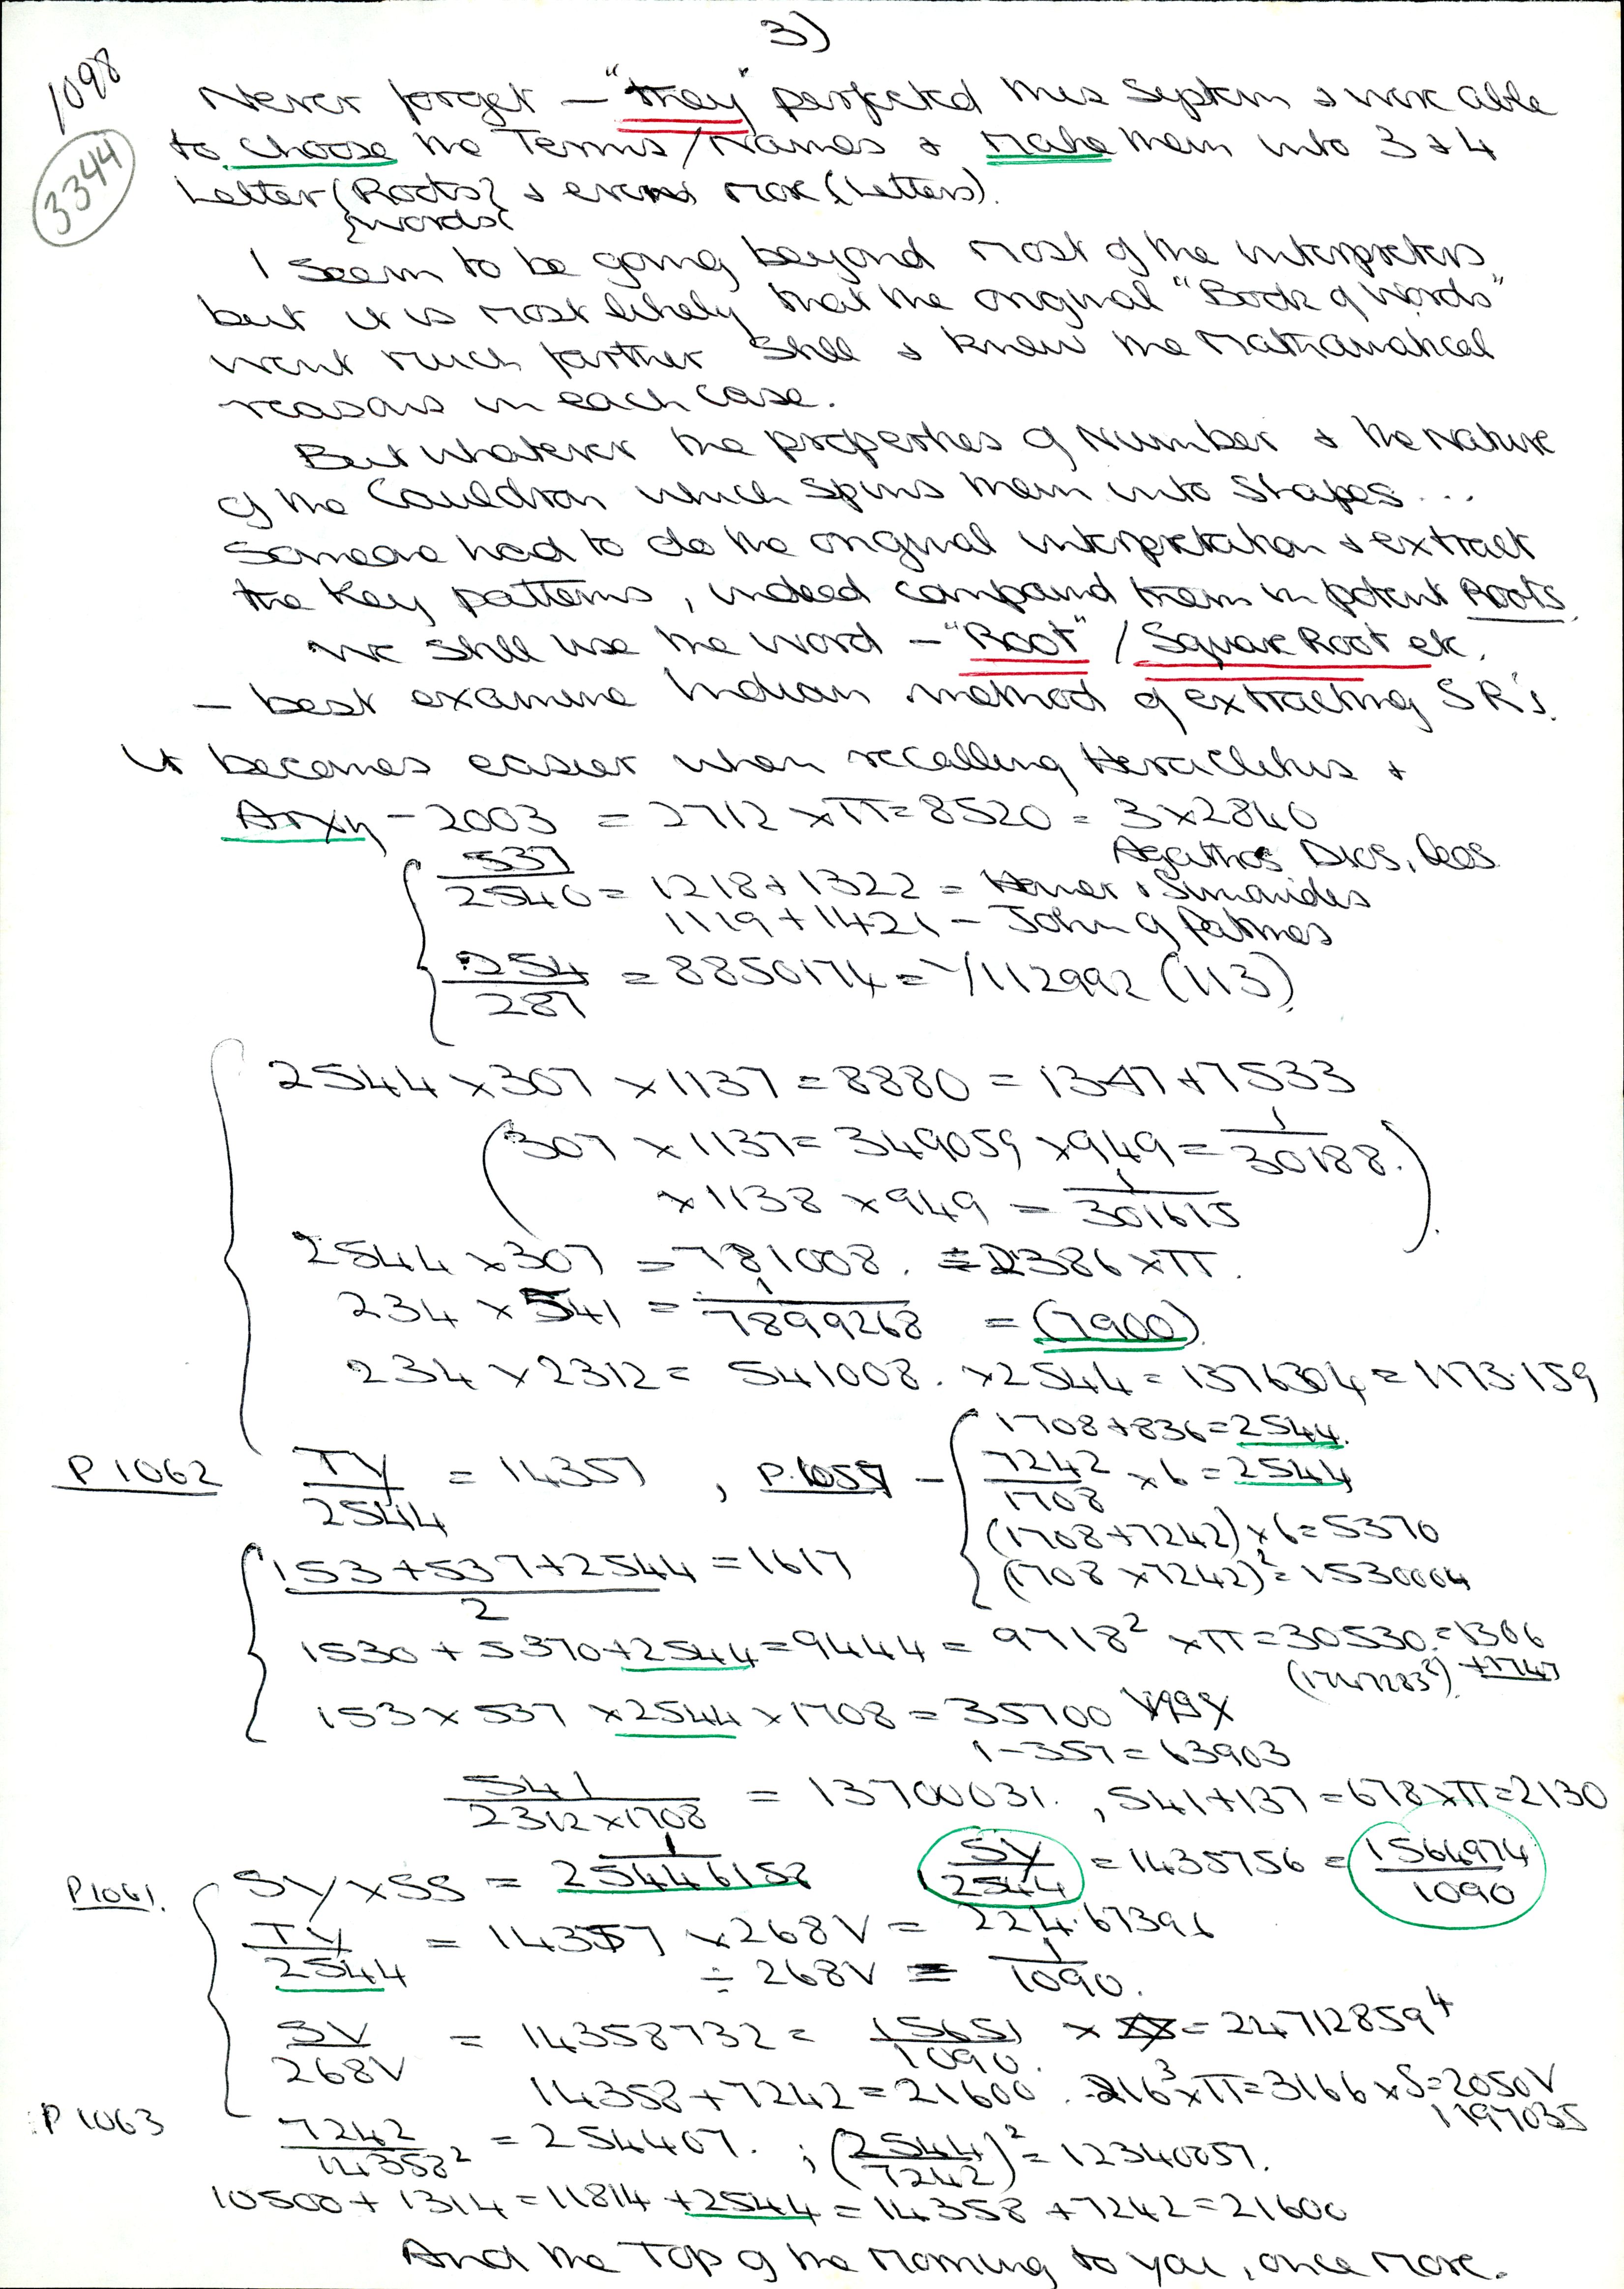 3)
1098
3344
Never forget - "they" perfected this System & were able
to choose the Terms/Names & make them into 3 & 4
Letter (Roots) & even more (Letters).
{words}
I seem to be going beyond most of the interpreters
but it is most likely that the original "Book of Words"
went much farther still & knew the Mathematical
reasons in each case.
But whatever the properties of Number & the Nature
of the Cauldron which spins them into shapes...
Someone had to do the original interpretation & extract
the key patterns, indeed compound them in potent Roots
We still use the word - "Root" / Square Root etc.
- best examine Indian method of extracting SR's.
It becomes easier when recalling Heraclitus &
Arxy - 2003 = 2712 x π = 8520 = 3 x 2840
Agathos Dios, Qeos.
537/2540 = 1218 + 1322 = Homer & Simonides
1119 + 1421 - John of Patmos
254/287 = 8850174 = 1/112992 (113)
2544 x 307 x 1137 = 8880 = 1347 + 7533
(307 x 1137 = 349059 x 949 = 1/30188.)
x 1138 x 949 = 1/301615
2544 x 307 = 781008. = 2386 x π.
234 x 541 = 1/7899268 = (7900)
234 x 2312 = 541008. x 2544 = 1376304 = 1173.159
1708 + 836 = 2544.
P 1062 TY/2544 = 14357 , P. 1059 - 7242/1708 x 6 = 2544
(1708 + 7242) x 6 = 5370
(1708 x 7242)² = 1530004
153 + 537 + 2544/2 = 1617
1530 + 5370 + 2544 = 9444 = 9718² x π = 30530. = 1306
(1747283²) + 1747
153 x 537 x 2544 x 1708 = 35700
1 - 357 = 63903
541/2312 x 1708 = 13700031. , 541 + 137 = 678 x π = 2130
P 1061. SY x SS = 1/25446158 SY/2544 = 1435756 = 1564974/1090
TY/2544 = 14357 x 268V = 224.67396
÷ 268V = 1/1090.
SV/268V = 14358732 = 15651/1090. x = 24712859⁴
14358 + 7242 = 21600. 216³ x π = 3166 x S = 2050V
1197035
P 1063 7242/14358² = 254407. ; (2544/7242)² = 12340057.
10500 + 1314 = 11814 + 2544 = 14358 + 7242 = 21600
And the Top of the Morning to you, once more.